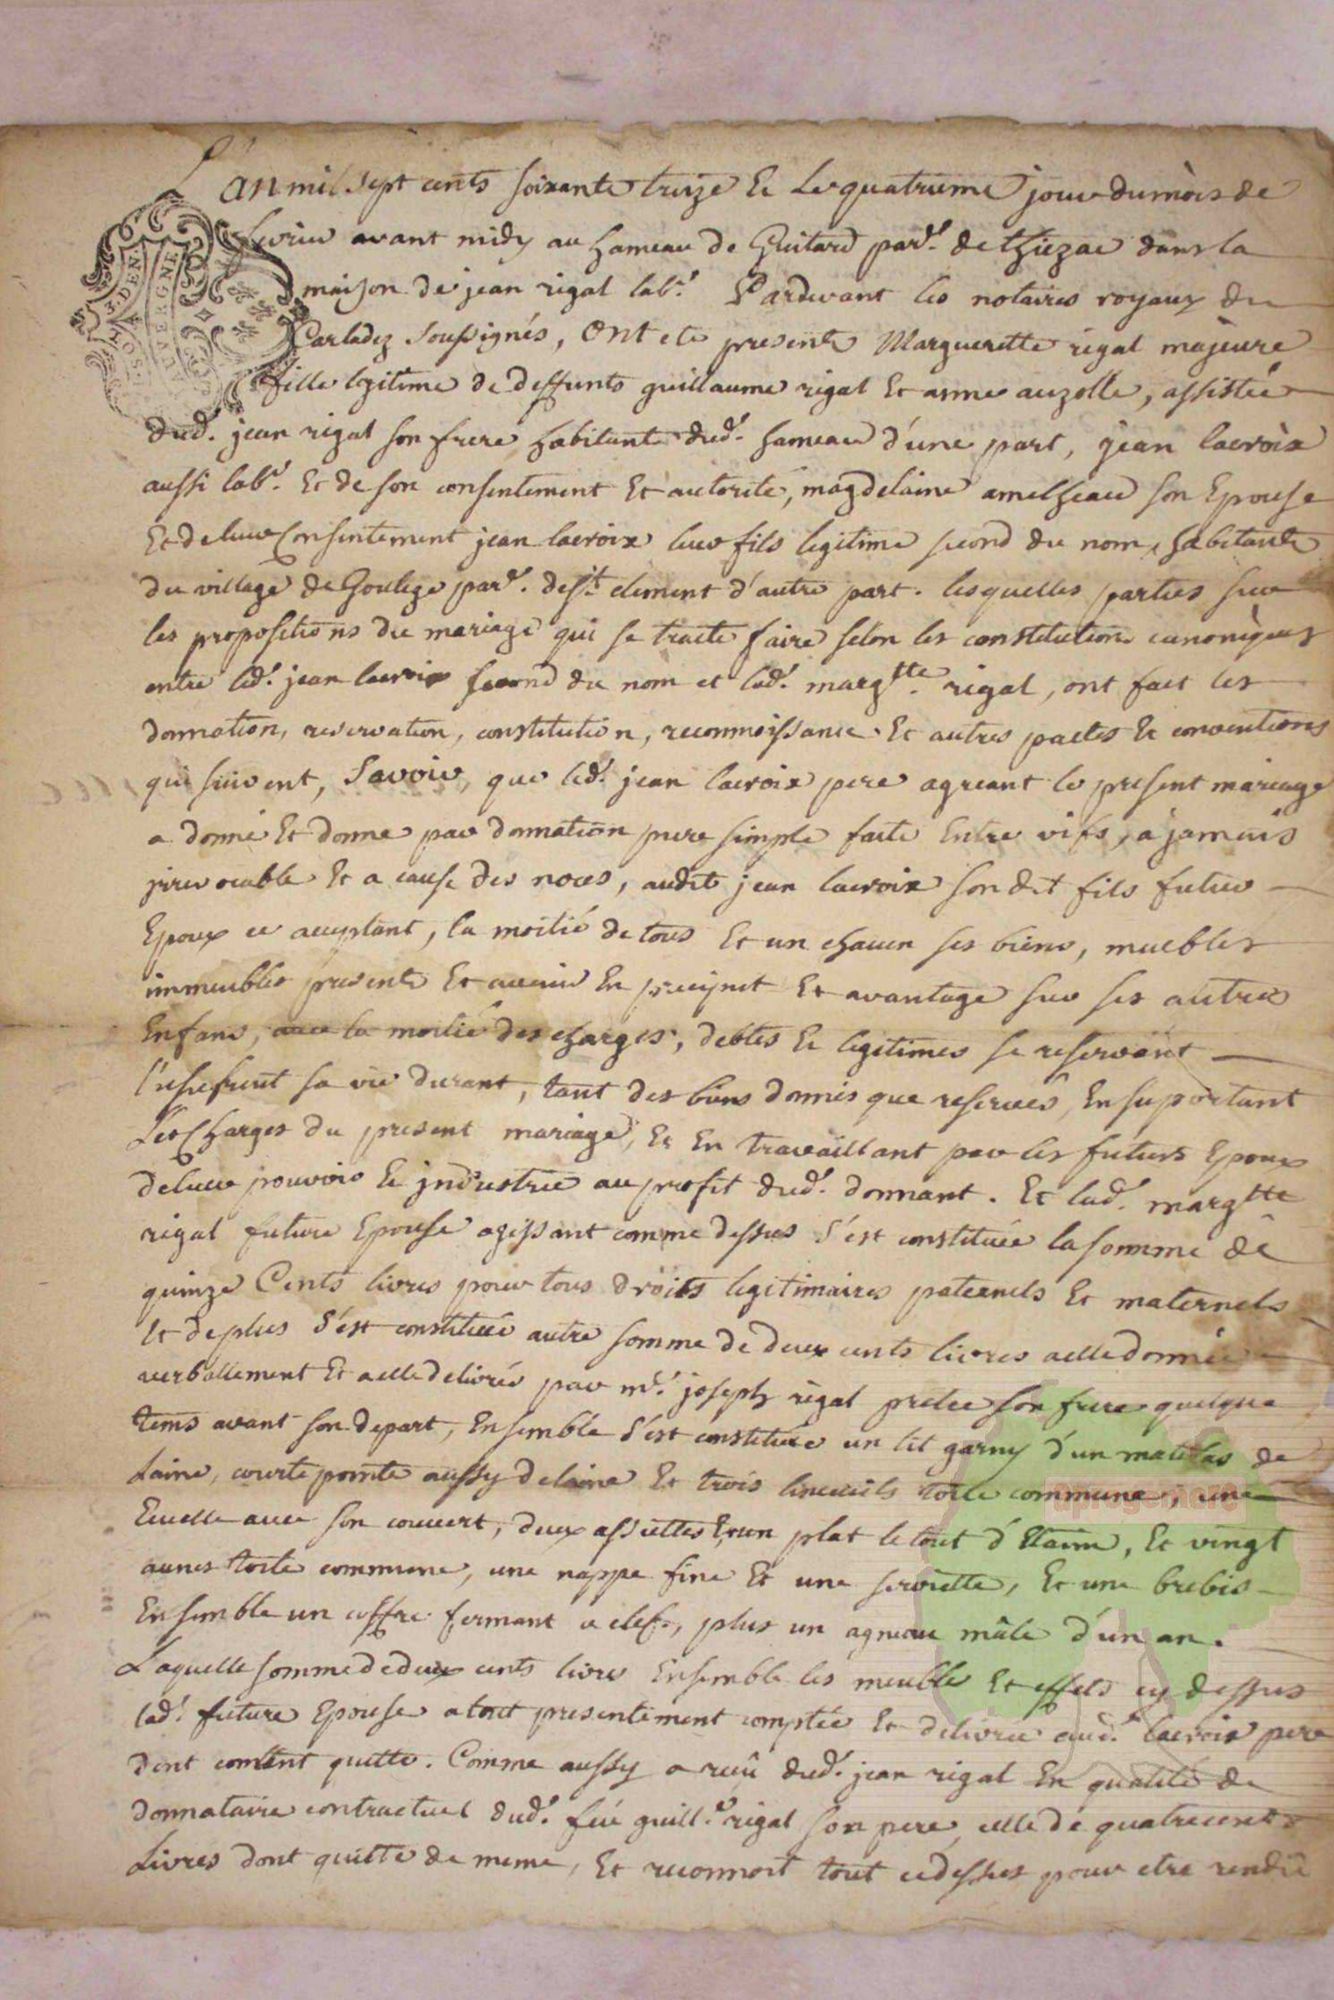 L'an mil sept cents soixante treize Et Le quatrieme jour du mois de
fevrier avant midy au hameau de Guitard par.e de thiezac dans la
maison de jean rigal lab.r Pardevant les notaires royaux du
Carladez soussignés, ont ete presents Marguerette rigal majeure
fille legitime de deffunts guillaume rigal Et anne auzolle, assistée
dud.t jean rigal son frere habitants dud.t hameau d'une part, jean lacroix
aussi lab.r Et de son consentement Et autorité, magdelaine amelheau son Epouse
Et de leur Consentement jean lacroix leur fils legitime second du nom, habitants
du village de Goulege par.e de s.t clement d'autre part. lesquelles parties sur
les propositions du mariage qui se traite faire selon les constitutions canoniques
entre led.t jean lacroix second du nom et lad.e marg.tte rigal, ont fait les
donnation, reservation, constitution, reconnoissance Et autres pactes Et conventions
qui suivent, Savoir, que led.t jean lacroix pere agreant le present mariage
a donné Et donne par donnation pure simple faite Entre vifs, a jamais
irrevocable Et a cause des noces, audit jean lacroix son dit fils futur
Epoux ce acceptant, la moitié de tous Et un chacun ses biens, meubles
immeubles presents Et avenir En preciput Et avantage sur ses autres
Enfans, avec la moitié des charges, debtes Et legitimes se reservant
l'usufruit sa vie durant, tant des biens donnés que reservés, En suportant
Les Charges du present mariage, Et En travaillant par les futurs Epoux
de leur pouvoir Et industrie au profit dud.t donnant. Et lad.e marg.tte
rigal future Epouse agissant comme dessus s'est constituée la somme de
quinze Cents livres pour tous droits legitimaires paternels Et maternels
Et de plus s'est constituée autre somme de deux cents livres a elle donnée
verballement Et a elle delivrée par m.e joseph rigal pretre son frere quelque
tems avant son depart, Ensemble s'est constituée un lit garny d'un matelas de
Laine, courtepointe aussy de laine Et trois linceuils toile commune, une
Ecuelle avec son couvert, deux assiettes Et un plat le tout d'Etaim, Et vingt
aunes toile commune, une nappe fine Et une serviette, Et une brebis
Ensemble un coffre fermant a clef, plus un agneau mâle d'un an.
Laquelle somme de deux cents livres Ensemble les meubles Et effets cy dessus
lad.e future Epouse a tout presentement comptée Et delivrée aud.t lacroix pere
dont content quitte. Comme aussy a reçû dud.t jean rigal En qualité de
donnataire contractuel dud.t feu guill.e rigal son pere, celle de quatre cents
Livres dont quitte de meme, Et reconnoit tout cedessus pour etre rendû